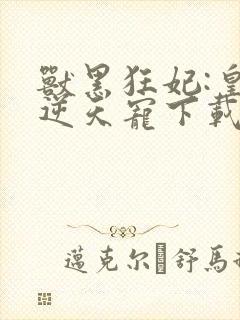 獸黑狂妃:皇
逆天寵下載
邁克尔·舒馬